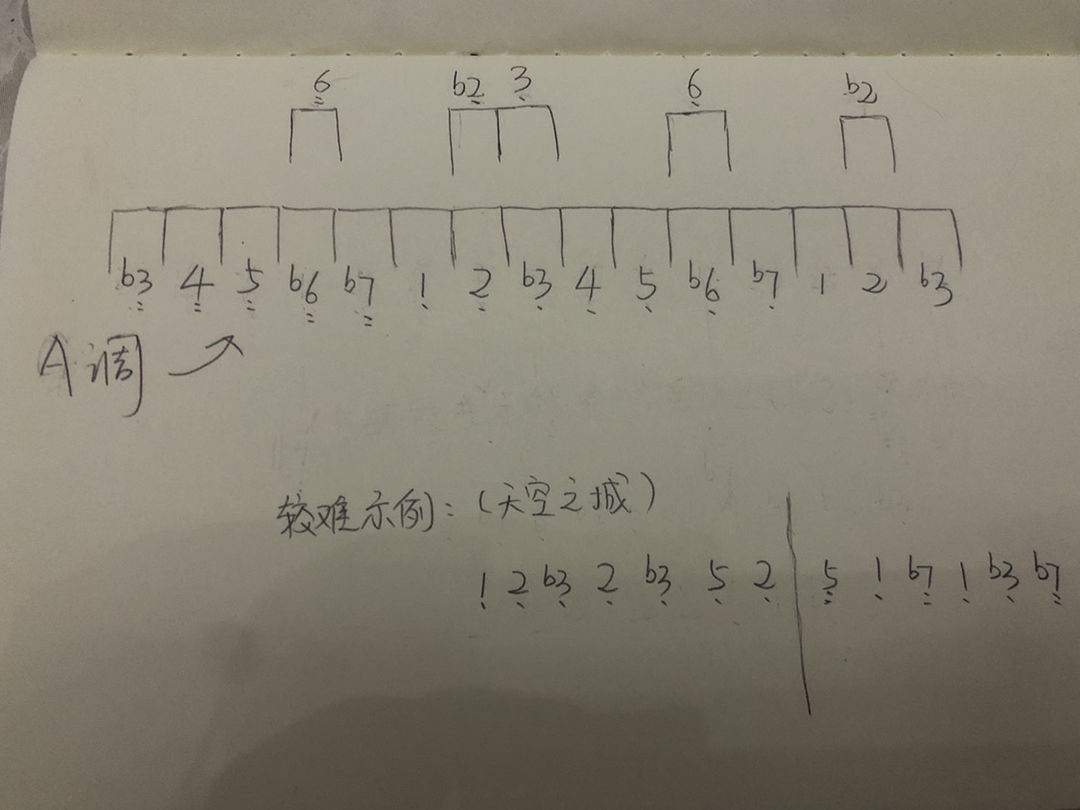 6̤ b2̤ 3̣ 6̤ b2
b3̤ 4̤ 5̤ b6̤ b7̤ 1̣ 2̣ b3̣ 4̣ 5̣ b6̣ b7̣ 1 2 b3
A调
较难示例:(天空之城)
1̣ 2̣ b3̣ 2̣ b3̣ 5̣ 2̣ | 5̤ 1̣ b7̤ 1̣ b3̣ b7̤